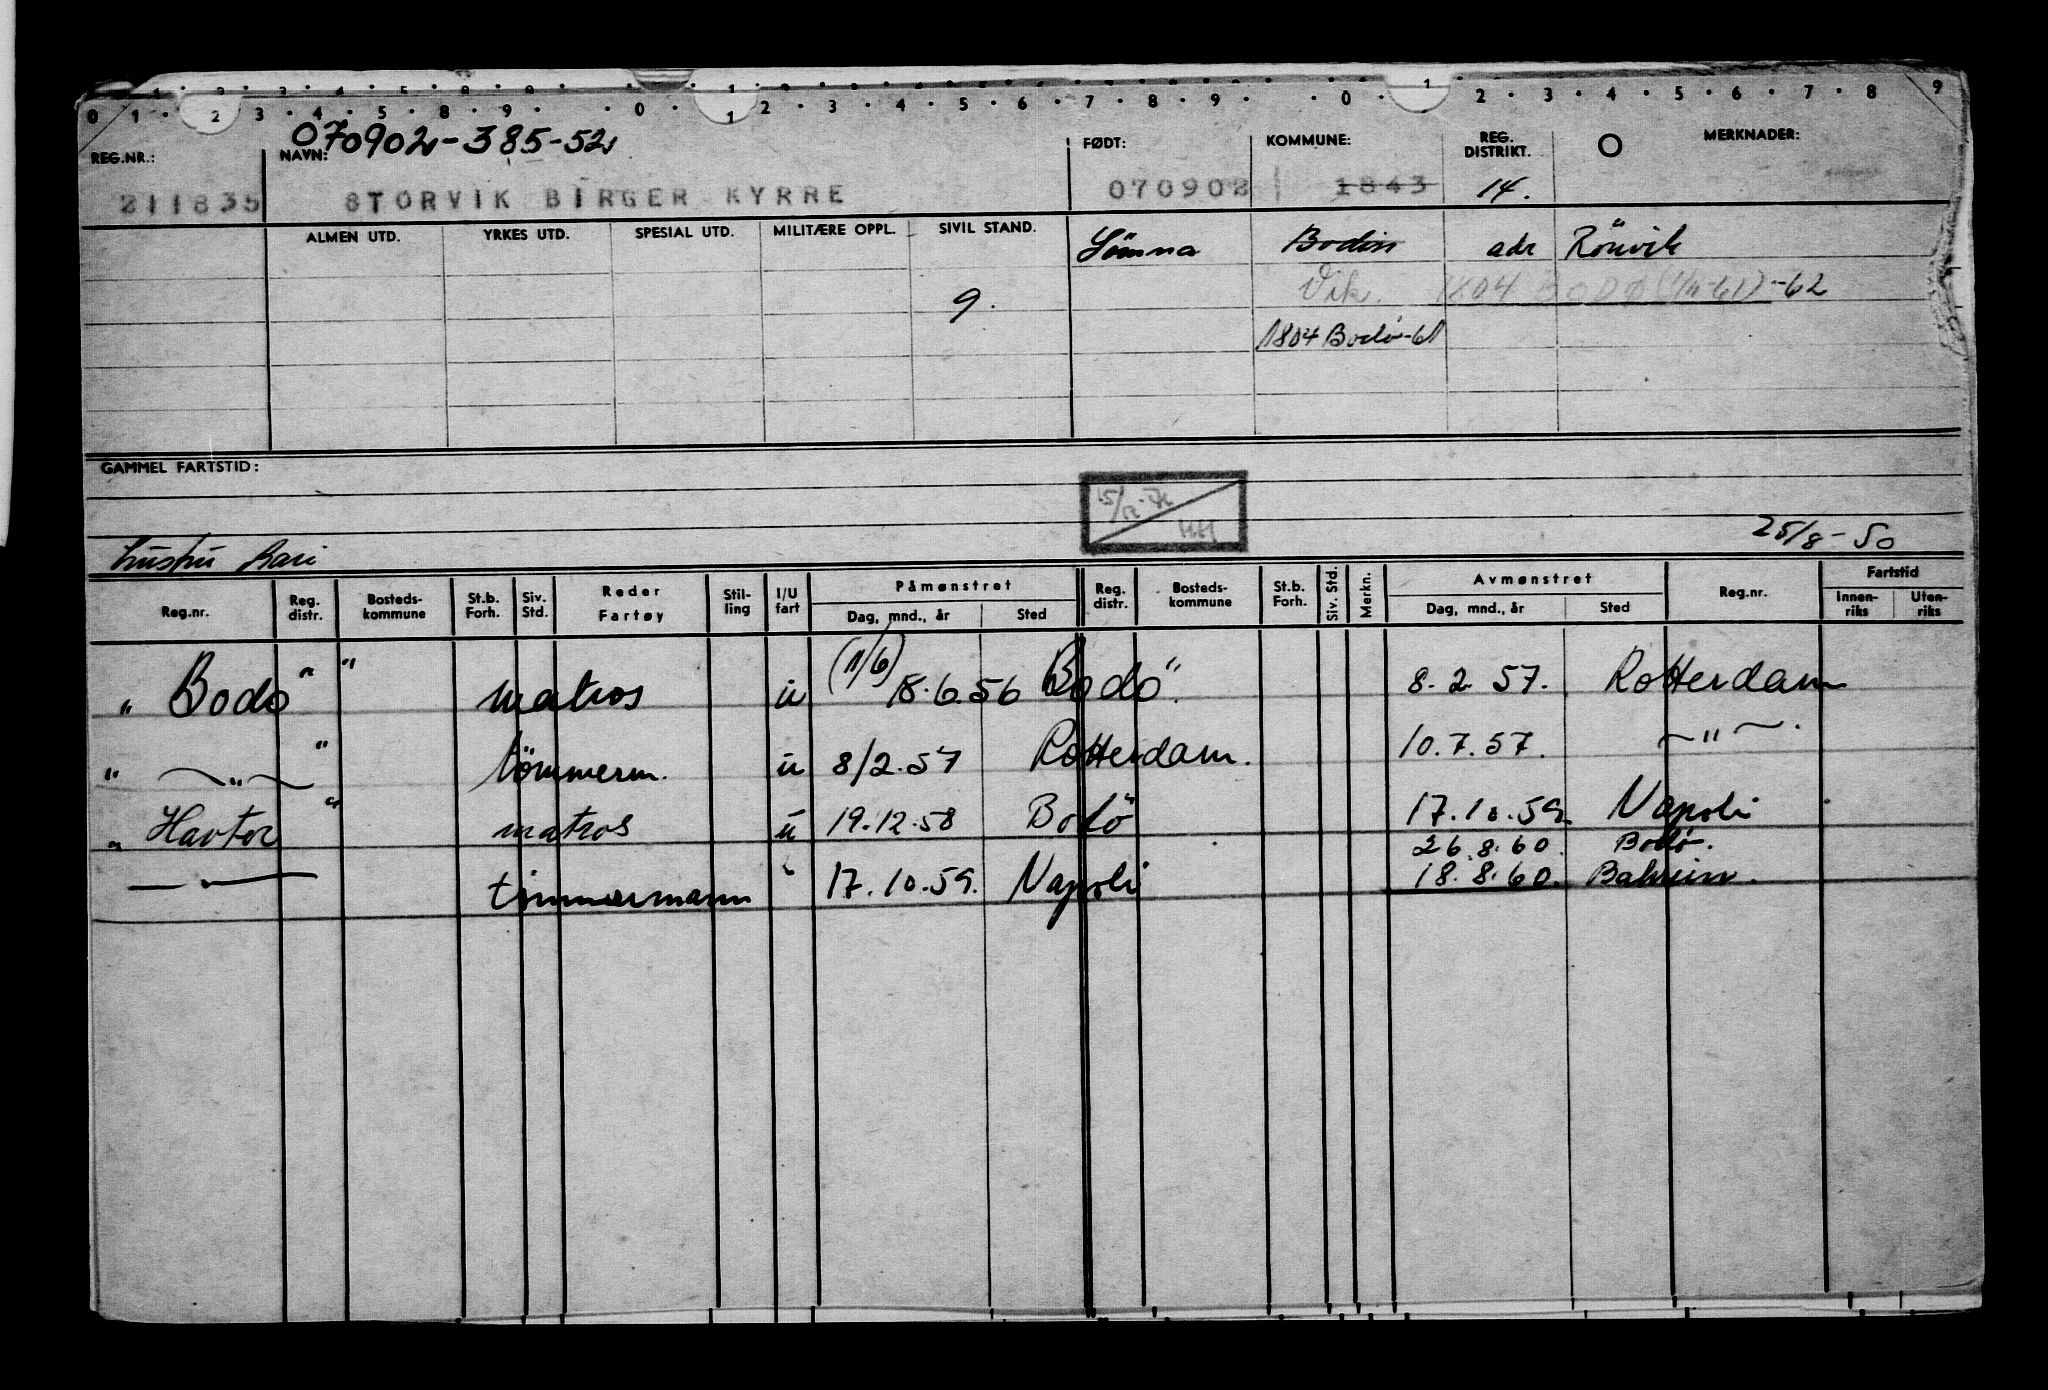 0 1 2 3 4 5 6 7 8 9 0 1 2 3 4 5 6 7 8 9 0 1 2 3 4 5 6 7 8 9
070902-385-52
REG.NR.: NAVN: FØDT: KOMMUNE: REG. DISTRIKT. O MERKNADER:
211835 STORVIK BIRGER KYRRE 070902 1843 14.
ALMEN UTD. YRKES UTD. SPESIAL UTD. MILITÆRE OPPL. SIVIL STAND. Sömna Bodin adr Rönvik
9. Vik. 1804 BODØ -62
1804 Bodö-61
GAMMEL FARTSTID:
15/12
HH
hustru Kari 25/8-50
Reg.nr. Reg. distr. Bosteds-kommune St.b. Forh. Siv. Std. Reder Fartøy Stil-ling I/U fart Påmønstret Dag, mnd., år Sted Reg. distr. Bosteds-kommune St.b. Forh. Siv. Std. Merkn. Avmønstret Dag, mnd., år Sted Reg.nr. Fartstid Innen-riks Uten-riks
(1/6)
" Bodö " " matros u 18.6.56 Bodö". 8.2.57. Rotterdam
" —"— " tömmerm. u 8/2.57 Rotterdam. 10.7.57. —"—.
" Havtor " matros u 19.12.58 Bodö 17.10.59. Napoli
26.8.60. Bodø.
— . — tömmermann " 17.10.59. Napoli 18.8.60. Bahrein.